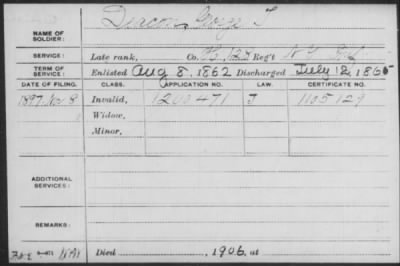 Deacon, George T
NAME OF SOLDIER:
SERVICE: Late rank, Co. B, 128 Reg't N.Y. Inf
TERM OF SERVICE: Enlisted Aug 8, 1862 Discharged July 12, 1865
DATE OF FILING. CLASS. APPLICATION NO. LAW. CERTIFICATE NO.
1897, Nov 8 Invalid, 1200471 J 1105129
Widow,
Minor,
ADDITIONAL SERVICES:
REMARKS:
Died 1906, at